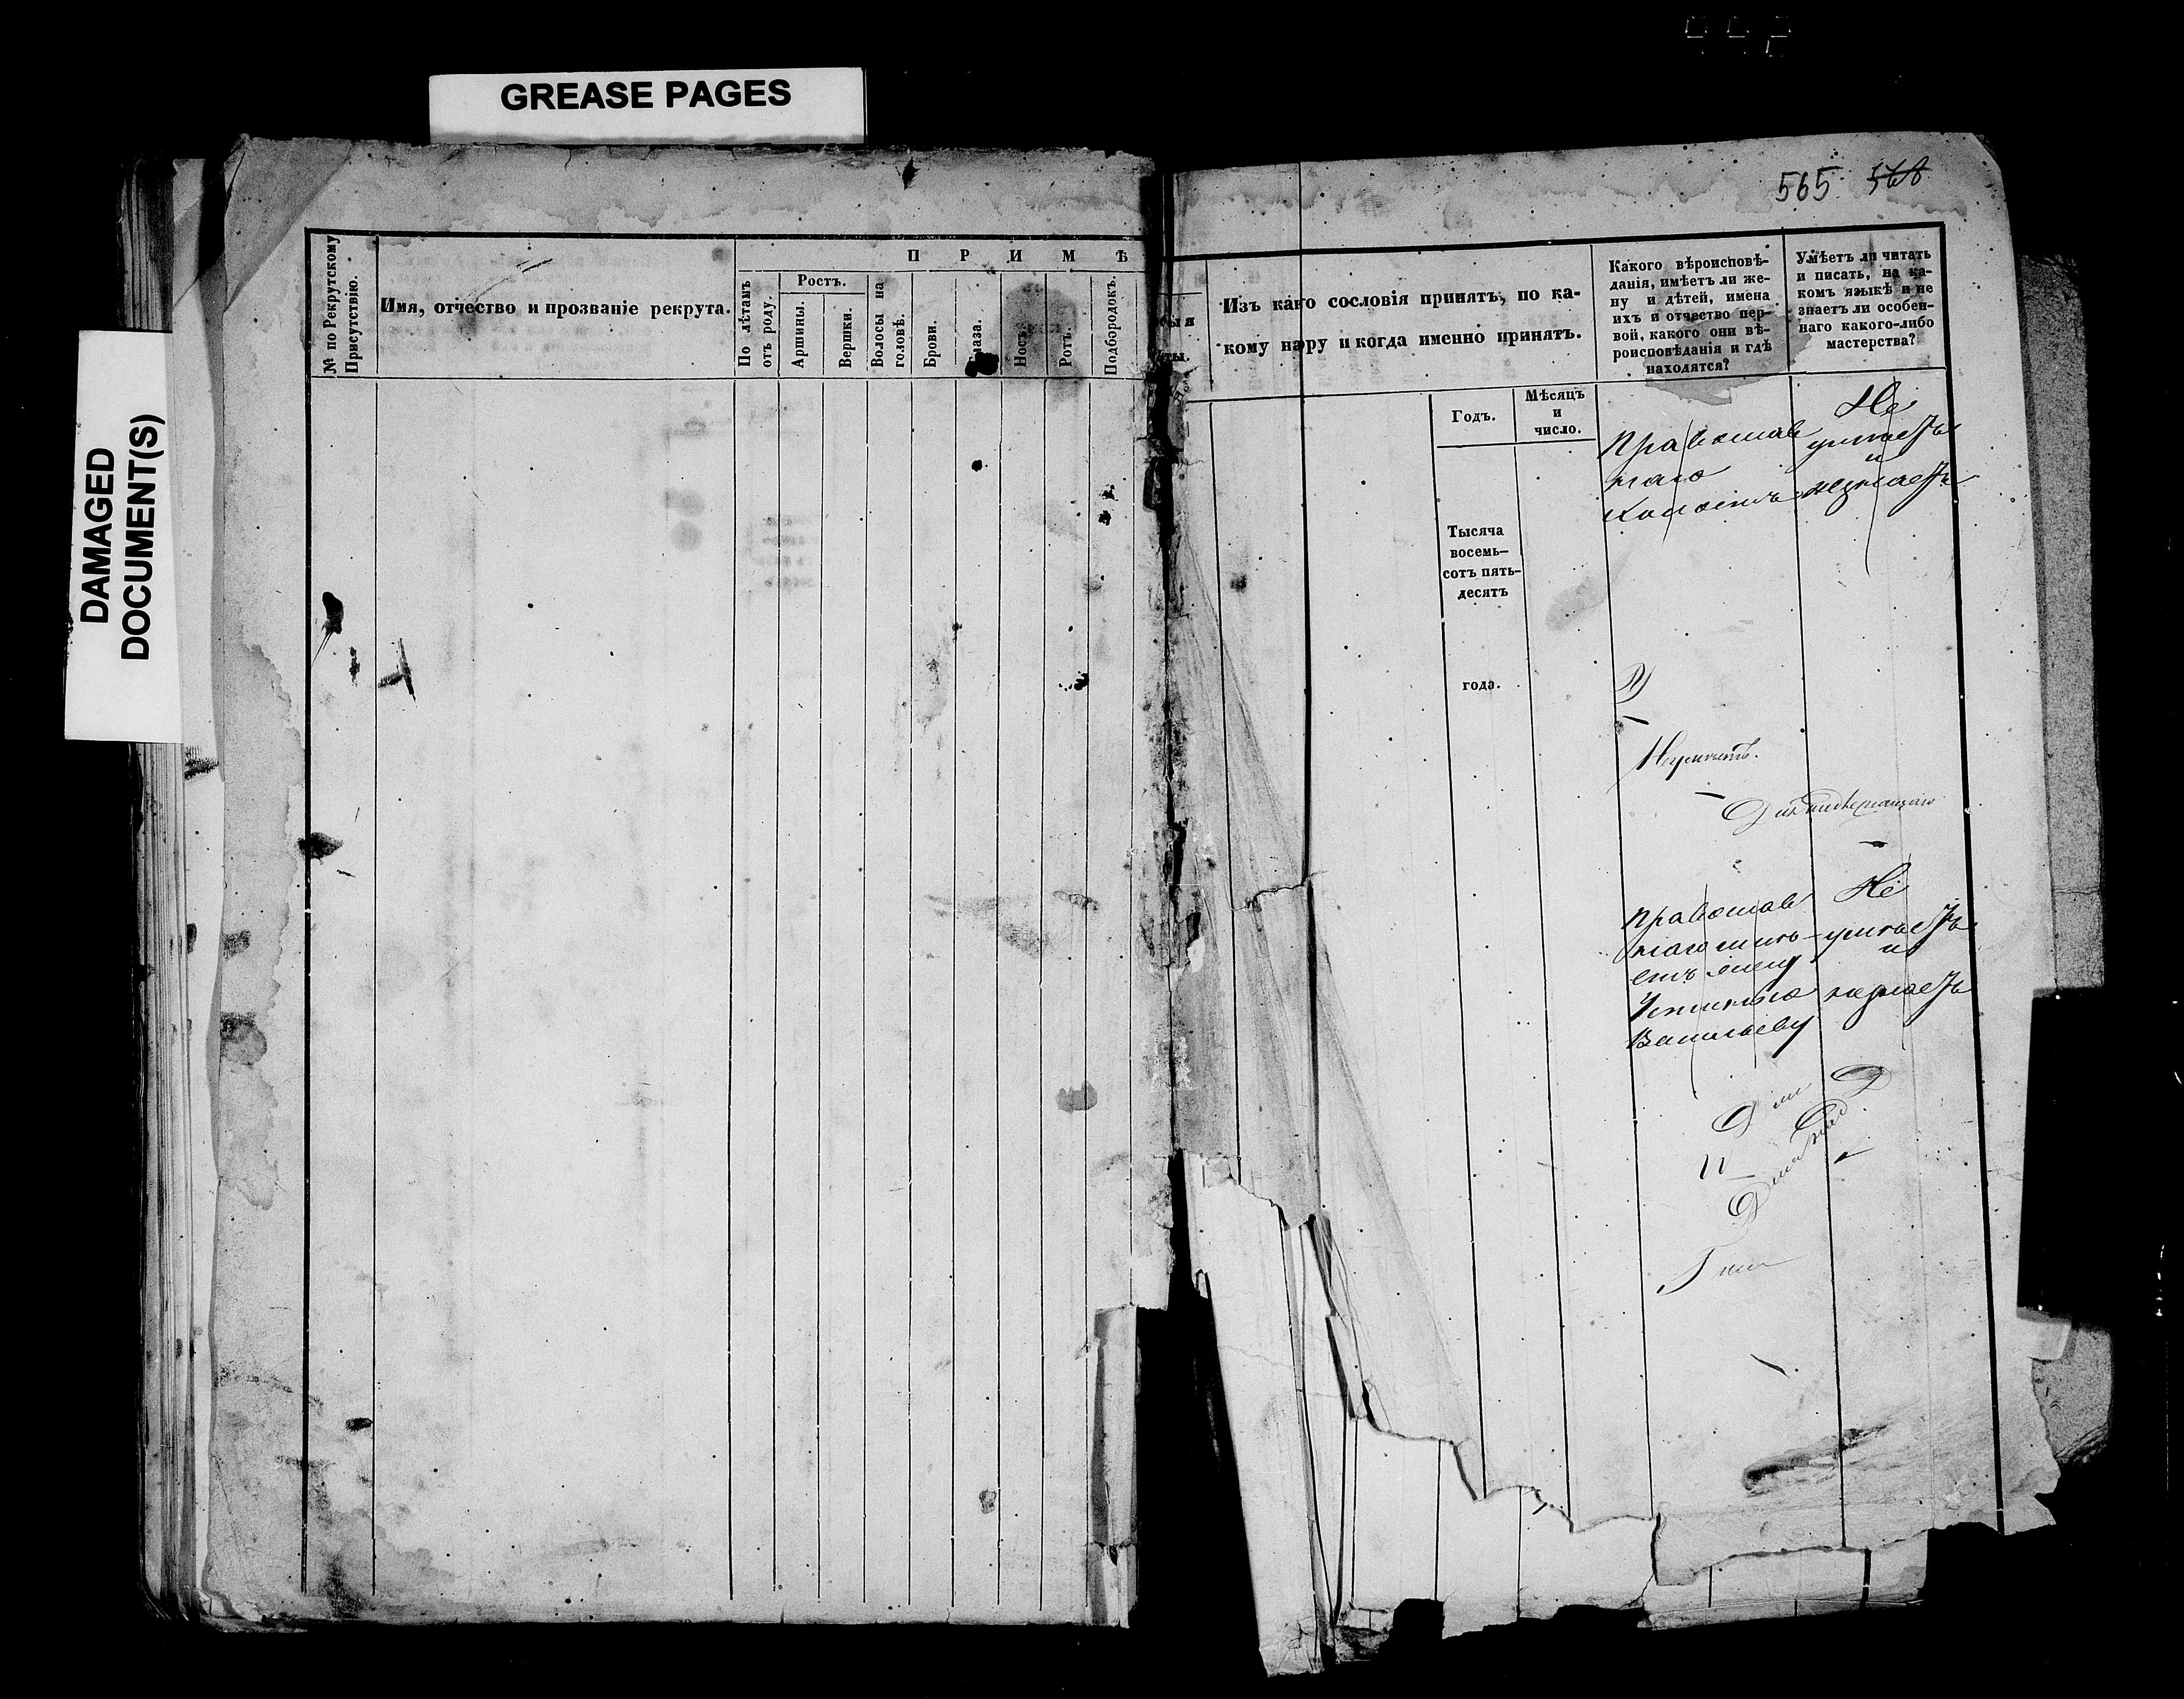 GREASE PAGES
DAMAGED
DOCUMENT(S)
565 568
№ по Рекрутскому
Присутствію.
Имя, отчество и прозваніе рекрута.
П Р И М Ѣ
По лѣтамъ
отъ роду.
Ростъ.
Аршины.
Вершки.
Волосы на
головѣ.
Брови.
Носъ.
Ротъ.
Подбородокъ.
Изъ каго сословія принятъ, по ка-
кому нару и когда именно принятъ.
Годъ.
Мѣсяцъ
и
число.
Тысяча
восемь-
сотъ пять-
десятъ
года.
Какого вѣроисповѣ-
данія, имѣетъ ли же-
ну и дѣтей, имена
ихъ и отчество пер-
вой, какого они вѣ-
роисповѣданія и гдѣ
находятся?
Умѣетъ ли читать
и писать, на ка-
комъ языкѣ и не
знаетъ ли особен-
наго какого-либо
мастерства?
Православ
наго
холостъ
Не
умѣетъ
и
незнаетъ
Православ
наго имѣ-
етъ жену
Устинью
Васильеву
Не
умѣетъ
и
незнаетъ